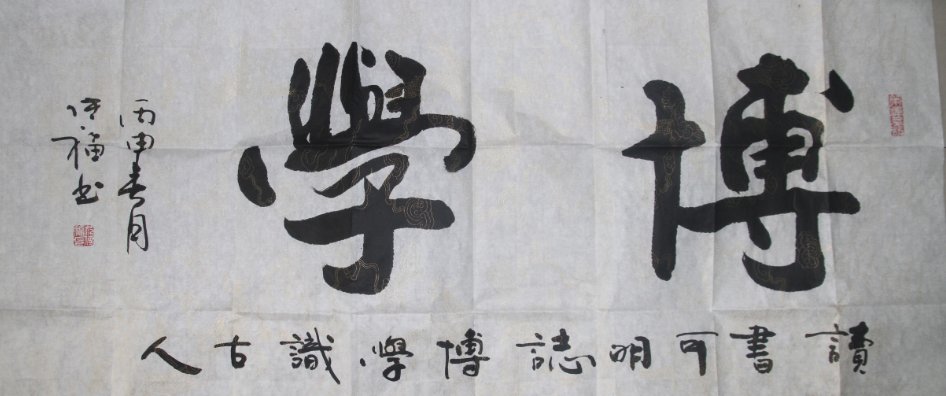 博學
讀書可明誌博學識古人
丙申春月
保福书